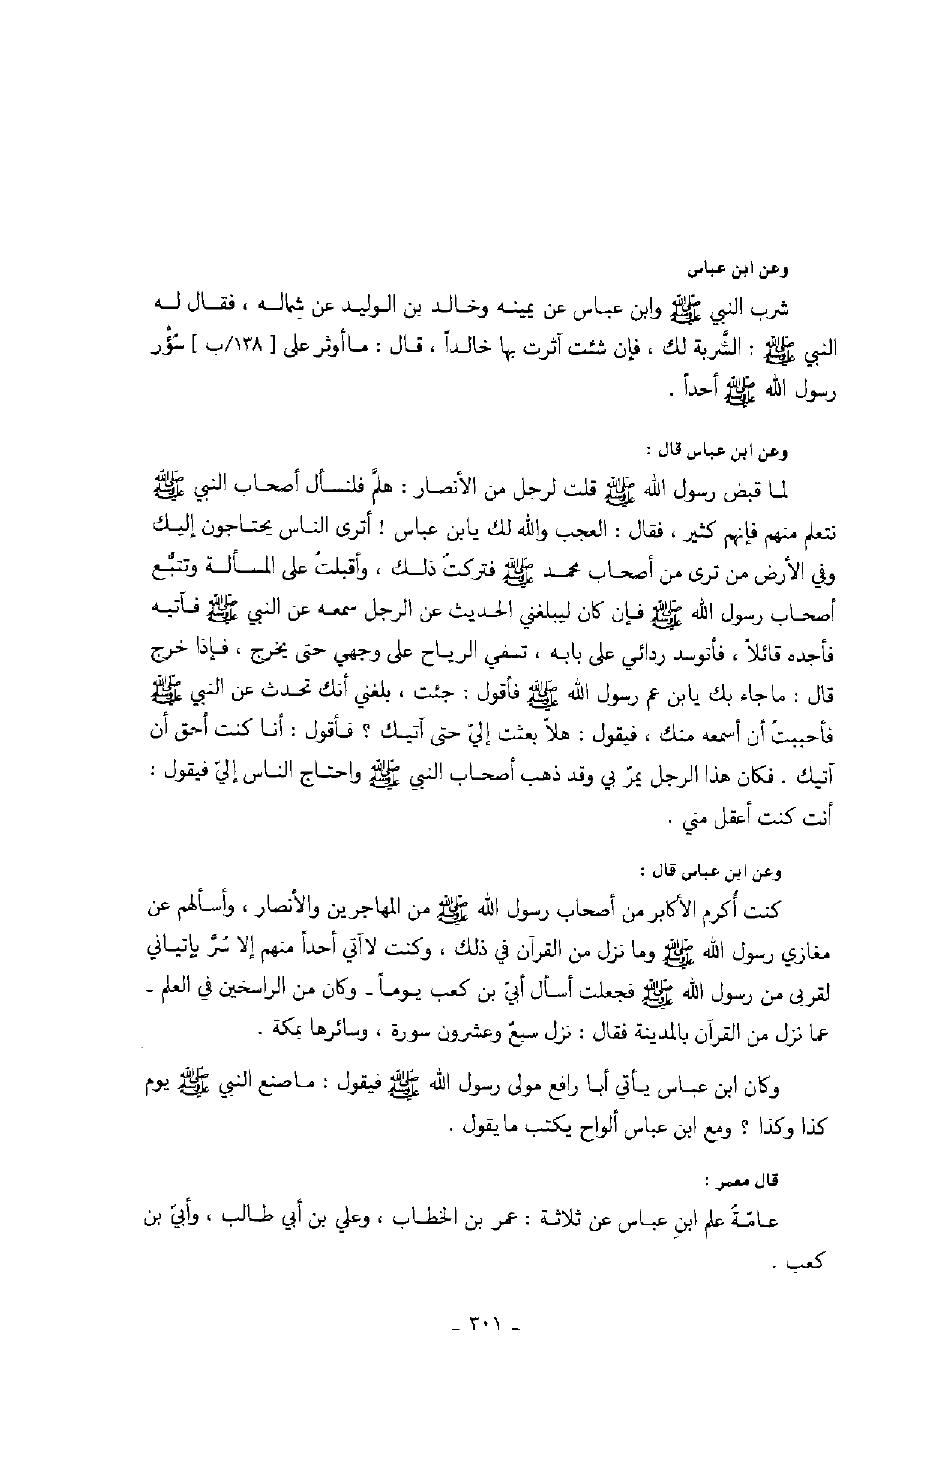 وعن ابن عباس
شرب النبي ﷺ وابن عباس عن يمينه وخالد بن الوليد عن شماله ، فقال له
النبي ﷺ : الشَّربة لك ، فإن شئت آثرت بها خالداً ، قال : ماأوثر على [ ١٣٨/ب ] سُؤْر
رسول الله ﷺ أحداً .
وعن ابن عباس قال :
لما قبض رسول الله ﷺ قلت لرجل من الأنصار : هلمَّ فلنسأل أصحاب النبي ﷺ
نتعلم منهم فإنهم كثير ، فقال : العجب والله لك يابن عباس ! أترى الناس يحتاجون إليك
وفي الأرض من ترى من أصحاب محمد ﷺ فتركتُ ذلك ، وأقبلتُ على المسألة وتتبُّع
أصحاب رسول الله ﷺ فإن كان ليبلغني الحديث عن الرجل سمعه عن النبي ﷺ فآتيه
فأجده قائلاً ، فأتوسد ردائي على بابه ، تسفي الرياح على وجهي حتى يخرج ، فإذا خرج
قال : ماجاء بك يابن عم رسول الله ﷺ فأقول : جئت ، بلغني أنك تحدث عن النبي ﷺ
فأحببتُ أن أسمعه منك ، فيقول : هلاّ بعثت إليّ حتى آتيك ؟ فأقول : أنا كنت أحق أن
آتيك . فكان هذا الرجل يمرّ بي وقد ذهب أصحاب النبي ﷺ واحتاج الناس إليّ فيقول :
أنت كنت أعقل مني .
وعن ابن عباس قال :
كنت أكرم الأكابر من أصحاب رسول الله ﷺ من المهاجرين والأنصار ، وأسألهم عن
مغازي رسول الله ﷺ وما نزل من القرآن في ذلك ، وكنت لاآتي أحداً منهم إلا سُرَّ بإتياني
لقربي من رسول الله ﷺ فجعلت أسأل أبيّ بن كعب يوماً - وكان من الراسخين في العلم -
عما نزل من القرآن بالمدينة فقال : نزل سبعٌ وعشرون سورة ، وسائرها بمكة .
وكان ابن عباس يأتي أبا رافع مولى رسول الله ﷺ فيقول : ماصنع النبي ﷺ يوم
كذا وكذا ؟ ومع ابن عباس ألواح يكتب مايقول .
قال معمر :
عامّةُ علم ابنِ عباس عن ثلاثة : عمر بن الخطاب ، وعلي بن أبي طالب ، وأبيّ بن
كعب .
- ٣٠١ -